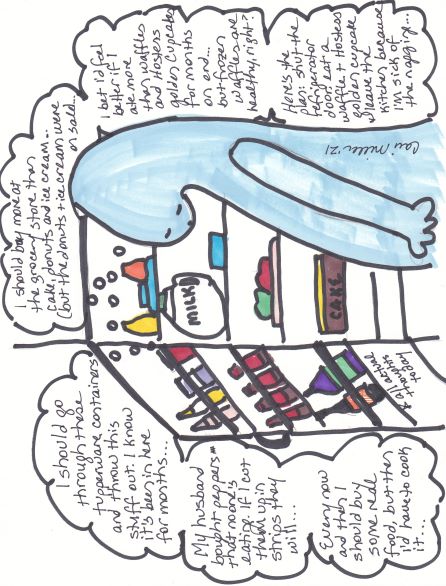 I should go
through these
tupperware containers
and throw this
stuff out. I know
it's been in here
for months...
I should buy more at
the grocery store than
cake, donuts and ice cream..
(but the donuts + ice cream were
on sale)...
My husband
bought peppers
that no one's
eating. If I cut
them up in
strips they
will...
Every now
and then I
should buy
some real
food, but then
I'd have to cook
it...
I bet I'd feel
better if I
ate more
than waffles
and Hostess
golden cupcakes
for months
on end...
but frozen
waffles are
healthy, right?
Here's the
plan: shut the
refrigerator
door, eat a
waffle + Hostess
golden cupcake
+ leave the
kitchen because
I'm sick of
the nagging...
MILK
CAKE
* all actual
thoughts
today
'21